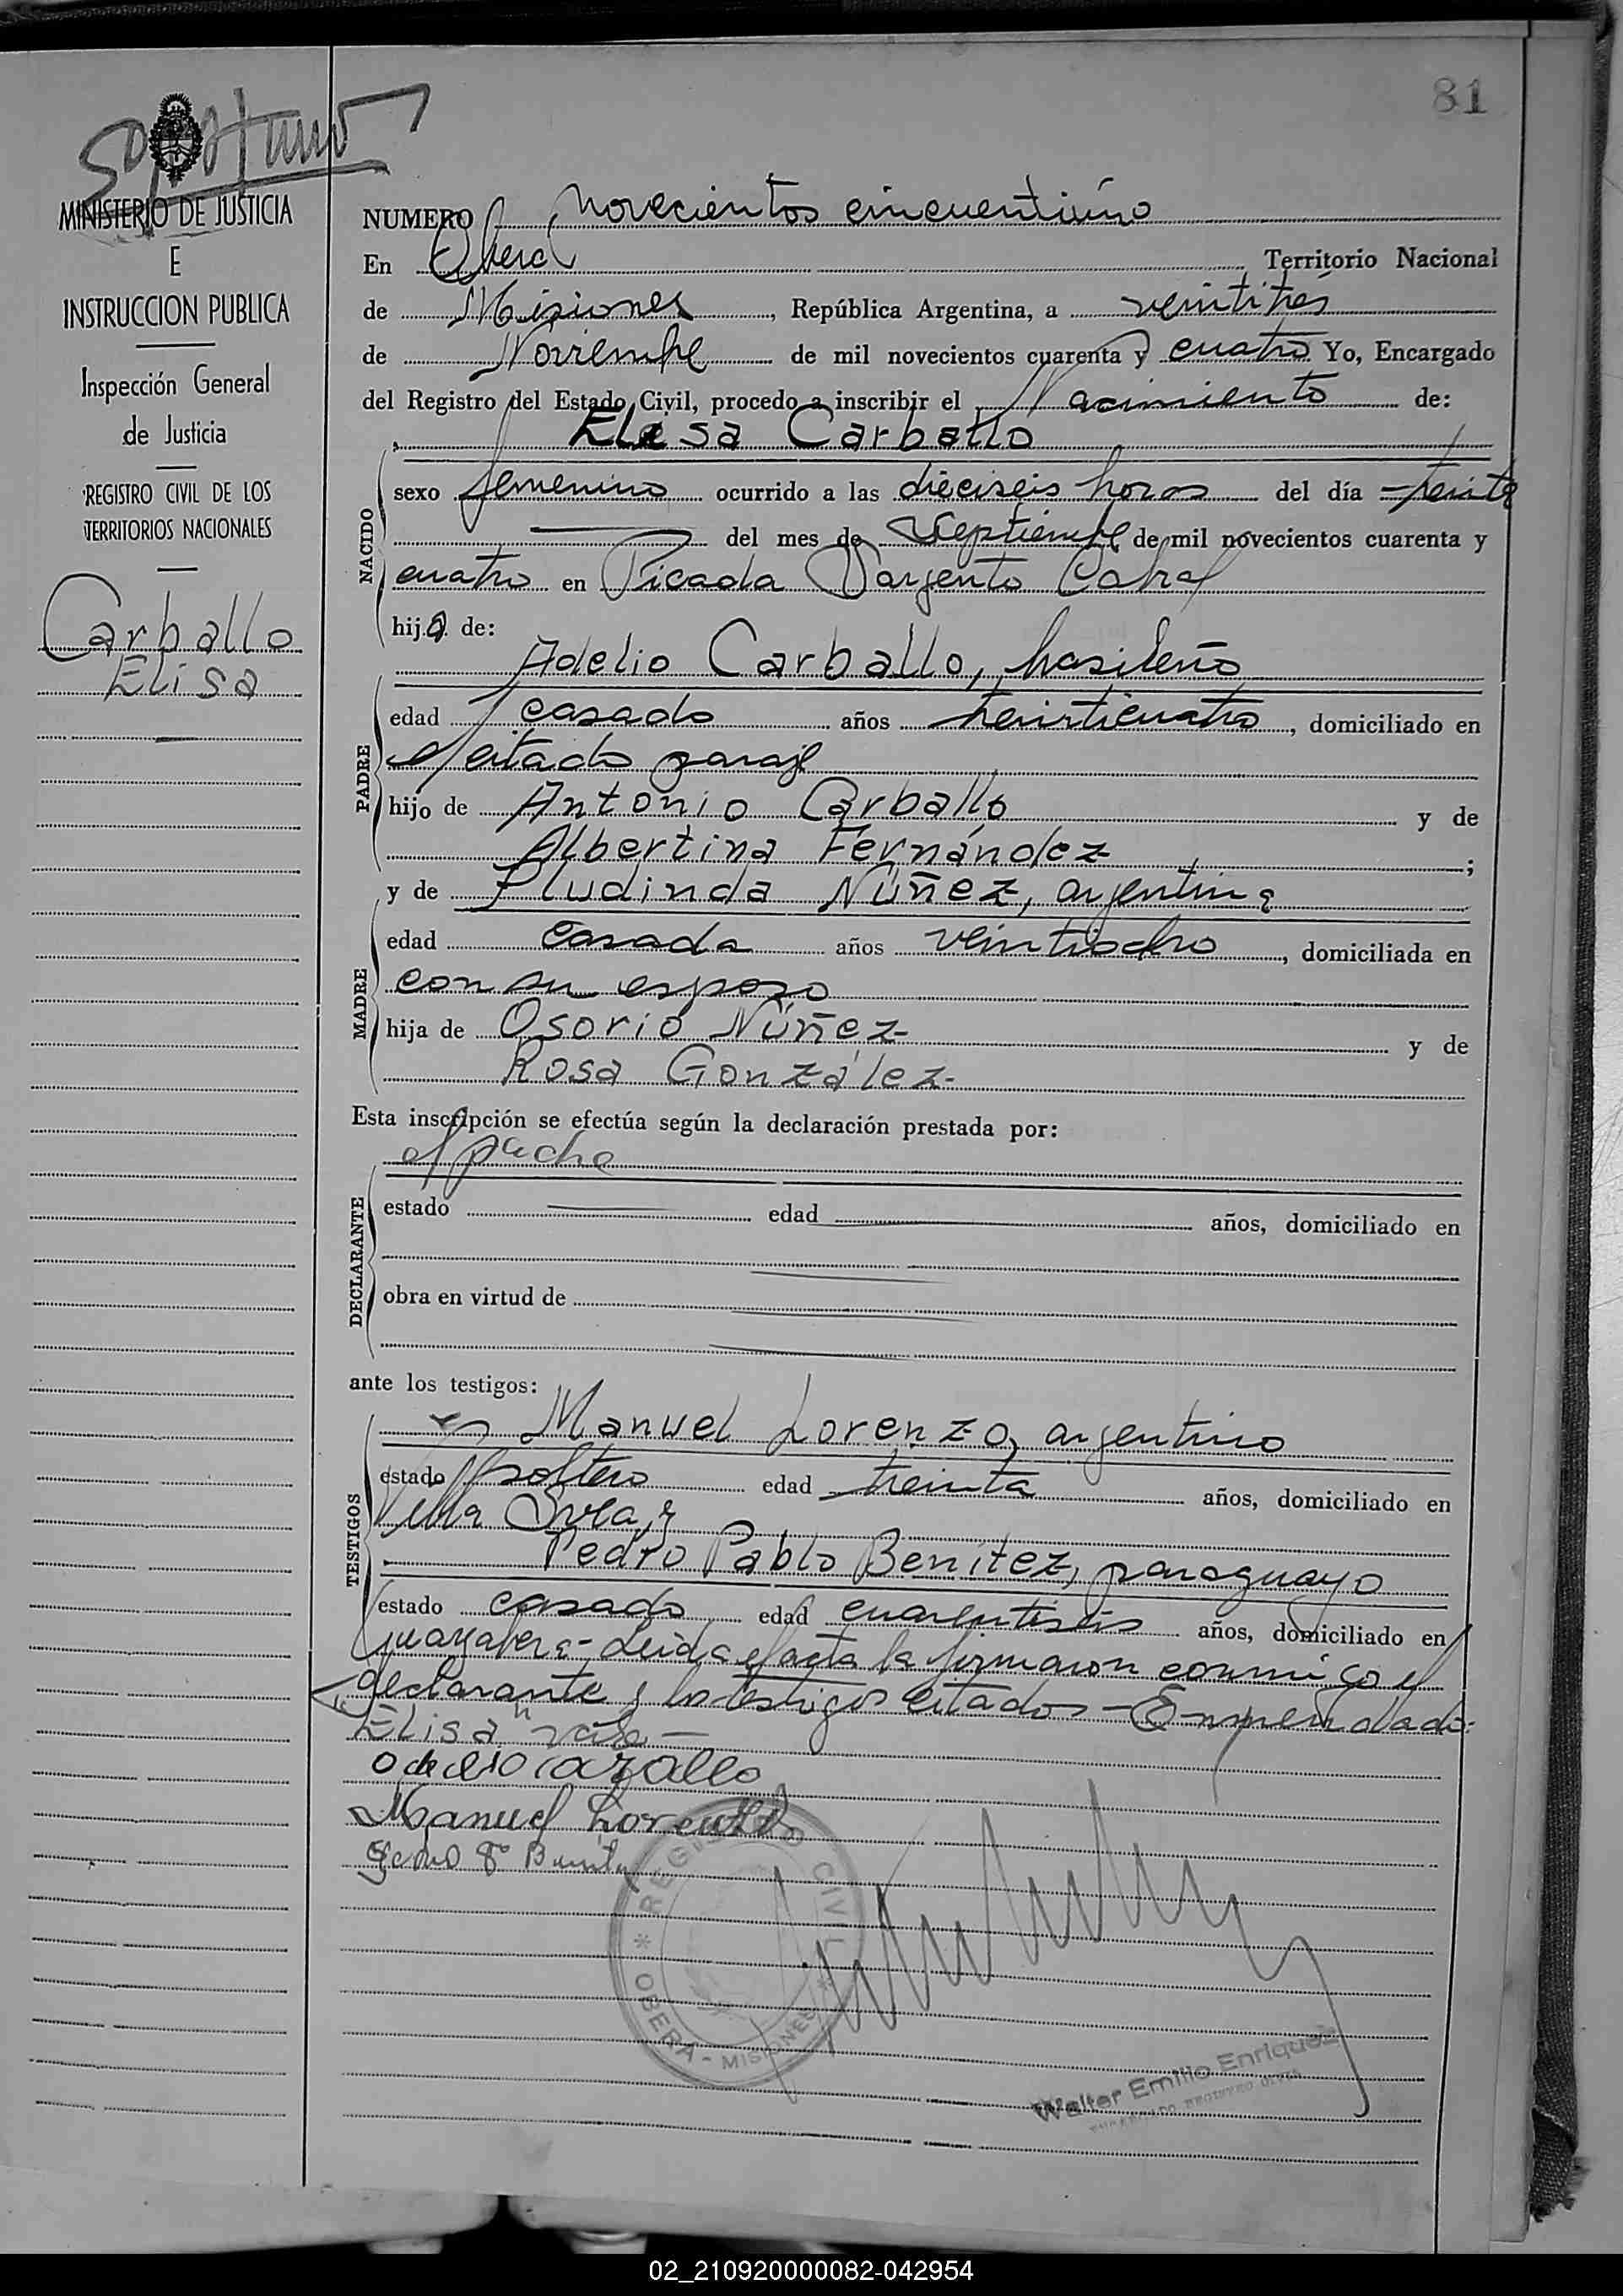 81
MINISTERIO DE JUSTICIA
E
INSTRUCCION PUBLICA
Inspección General
de Justicia
REGISTRO CIVIL DE LOS
TERRITORIOS NACIONALES
Carballo
Elisa
NUMERO novecientos cincuentiúno
En Oberá Territorio Nacional
de Misiones, República Argentina, a veintitrés
de Noviembre de mil novecientos cuarenta y cuatro Yo, Encargado
del Registro del Estado Civil, procedo a inscribir el Nacimiento de:
Elisa Carballo
NACIDO
sexo femenino ocurrido a las dieciseis horas del día treinta
del mes de Septiembre de mil novecientos cuarenta y
cuatro en Picada Sargento Cabral
hija de:
Adelio Carballo, brasileño
PADRE
edad casado años treinticuatro, domiciliado en
el citado paraje
hijo de Antonio Carballo y de
Albertina Fernández ;
y de Pludinda Núñez, argentina
MADRE
edad casada años veintiocho, domiciliada en
con su esposo
hija de Osorio Núñez y de
Rosa González
Esta inscripción se efectúa según la declaración prestada por:
el padre
DECLARANTE
estado edad años, domiciliado en
obra en virtud de
ante los testigos:
TESTIGOS
Manuel Lorenzo, argentino
estado soltero edad treinta años, domiciliado en
Villa Svea, y
Pedro Pablo Benítez, paraguayo
estado casado edad cuarentiseis años, domiciliado en
Guayabera - Leída el acta la firmaron conmigo el
declarante y los testigos citados - Enmendado:
"Elisa" vale -
Manuel Lorenzo
REGISTRO CIVIL
* OBERA - MISIONES *
Walter Emilio Enriquez
ENCARGADO REGISTRO CIVIL
02_210920000082-042954